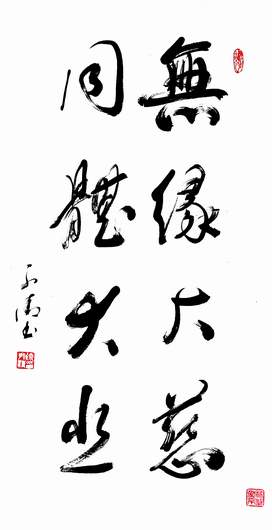 無緣大慈
同體大悲